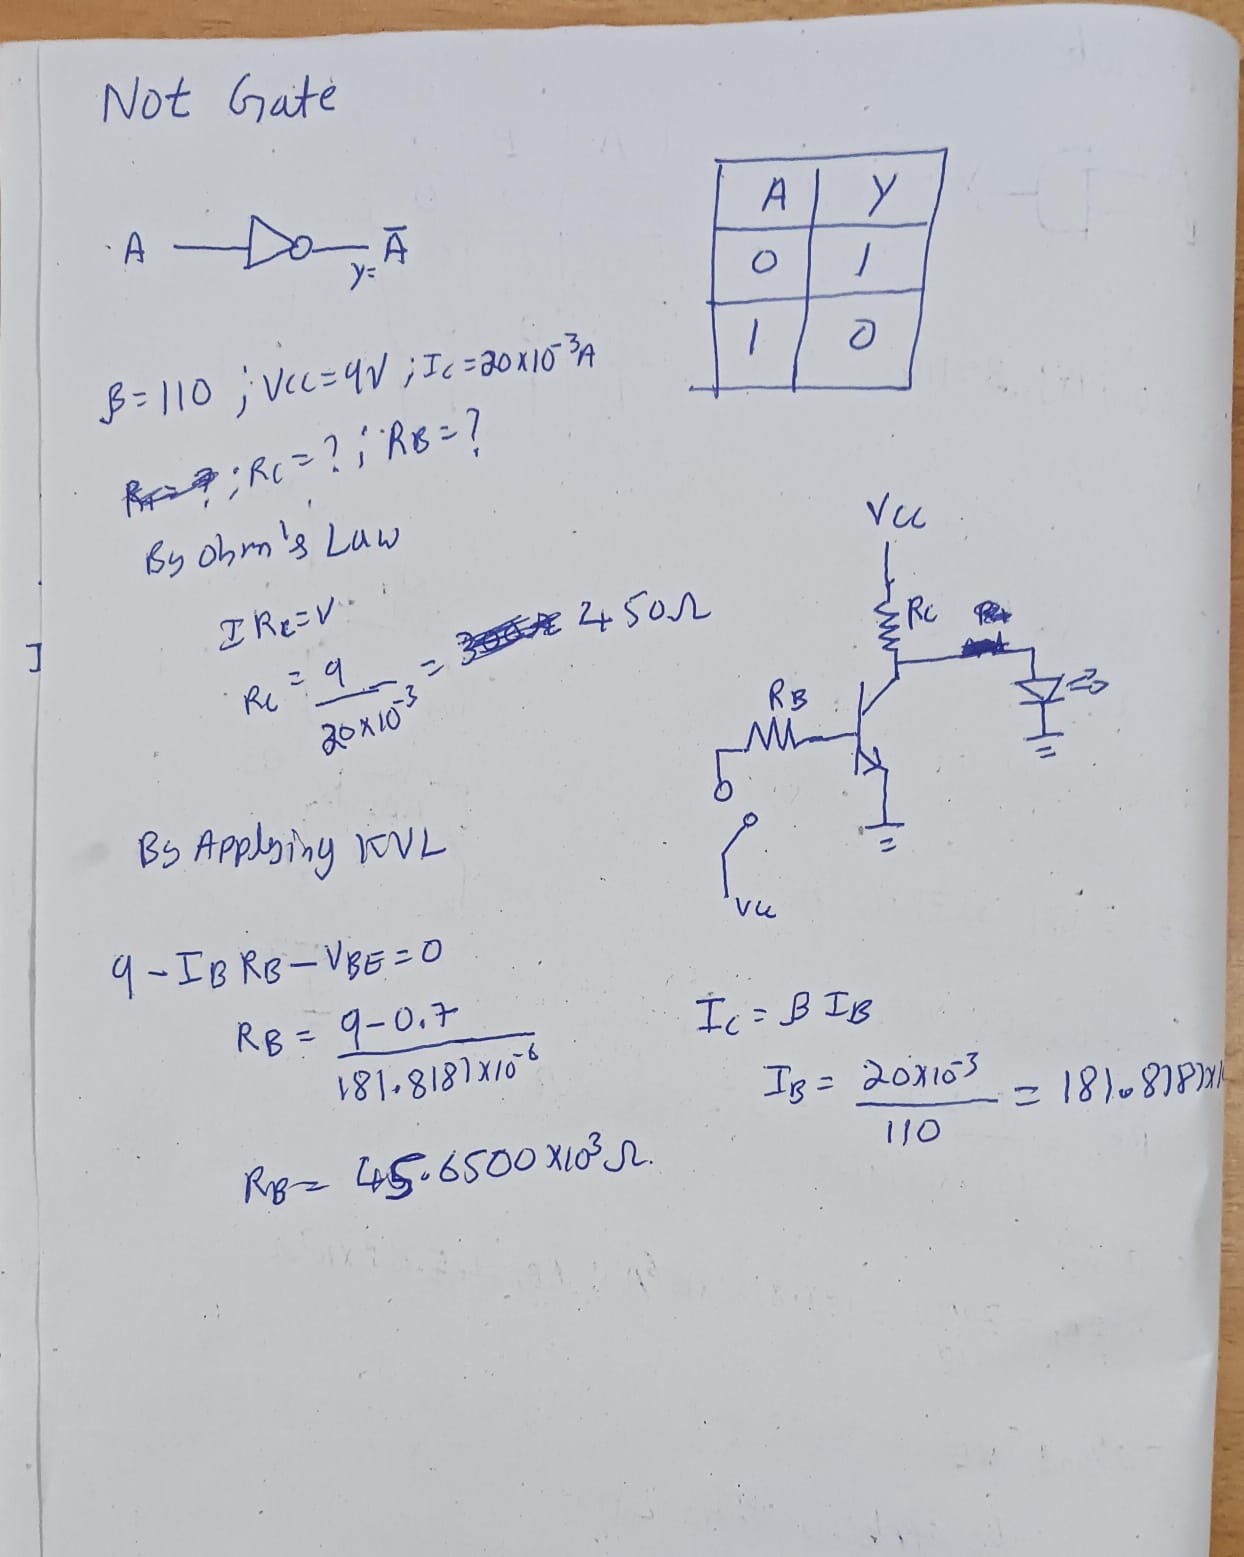 Not Gate
A
y= Ā
A Y
0 1
1 0
β=110 ; VCC=9V ; IC=20×10⁻³A
; RC=? ; RB=?
By Ohm's Law
I RC=V
RC = 9 / 20×10⁻³ = 450Ω
VCC
RC
RB
VCC
By Applying KVL
9-IB RB-VBE=0
RB = 9-0.7 / 181.8181×10⁻⁶
RB= 45.6500×10³Ω.
IC=β IB
IB = 20×10⁻³ / 110 = 181.8181×1